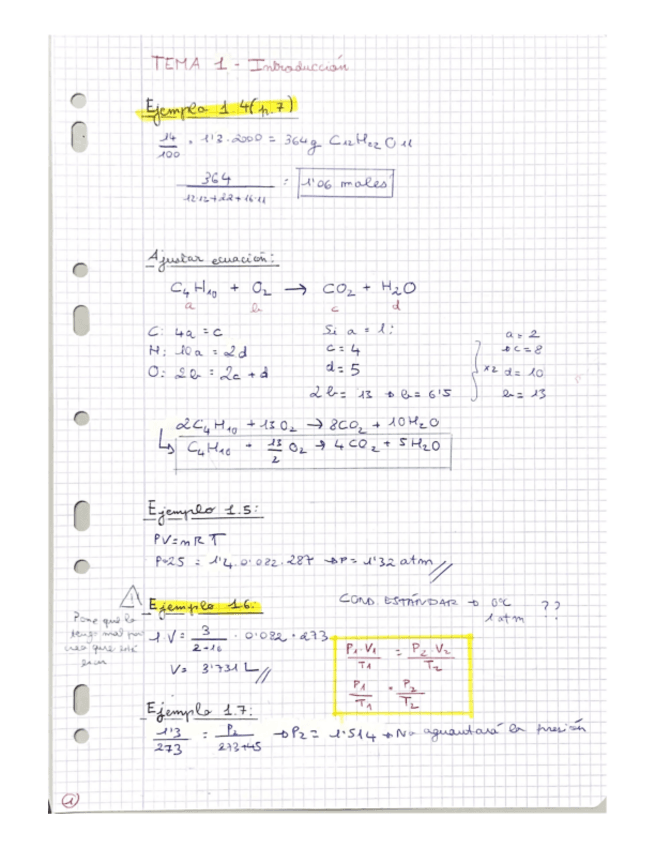 TEMA 1 - Introducción
Ejemplo 1.4 (p.7)
14/100 · 1'3 · 2000 = 364g C12H22O11
364/(12·12+22+16·11) = 1'06 moles
Ajustar ecuación:
C4H10 + O2 → CO2 + H2O
a b c d
C: 4a = c
H: 10a = 2d
O: 2b = 2c + d
Si a = 1:
c = 4
d = 5
2b = 13 → b = 6'5
x2
a = 2
→ c = 8
d = 10
b = 13
2C4H10 + 13O2 → 8CO2 + 10H2O
↳ C4H10 + 13/2 O2 → 4CO2 + 5H2O
Ejemplo 1.5:
PV = nRT
P·25 = 1'4 · 0'082 · 287 → P = 1'32 atm
Ejemplo 1.6:
COND. ESTÁNDAR → 0ºC
1 atm
??
!
Pone que lo
tengo mal pero
creo que está
1·V = 3/(2·16) · 0'082 · 273
V = 3'731 L
P1·V1/T1 = P2·V2/T2
P1/T1 = P2/T2
Ejemplo 1.7:
1'3/273 = P2/(273+45) → P2 = 1'514 → No aguantará la presión
1